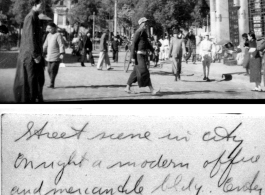 Street scene in city
On right a modern office
and mercantile bldg. Entry